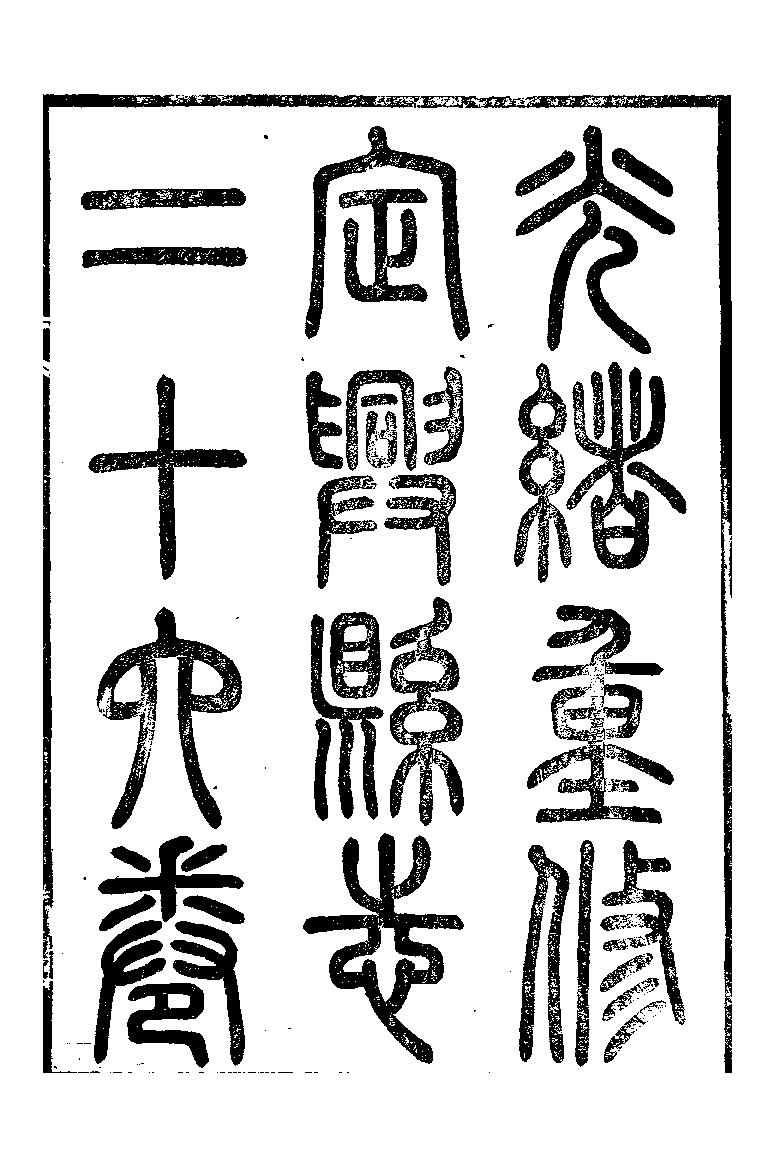 光緒重修
定興縣志
二十六卷